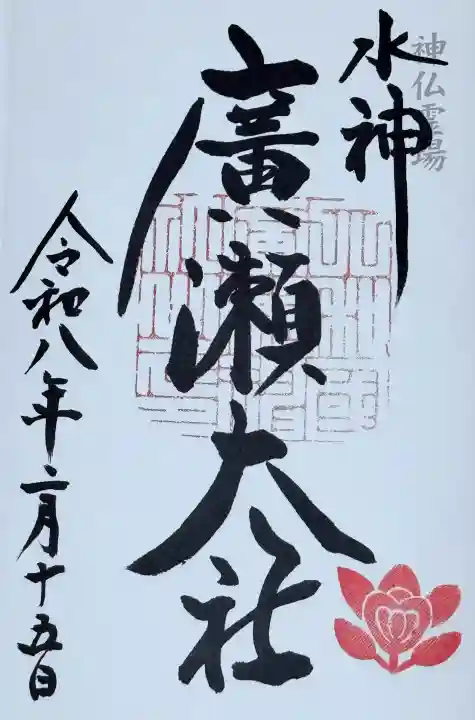 神仏霊場
水神
廣瀬大社
令和八年二月十五日